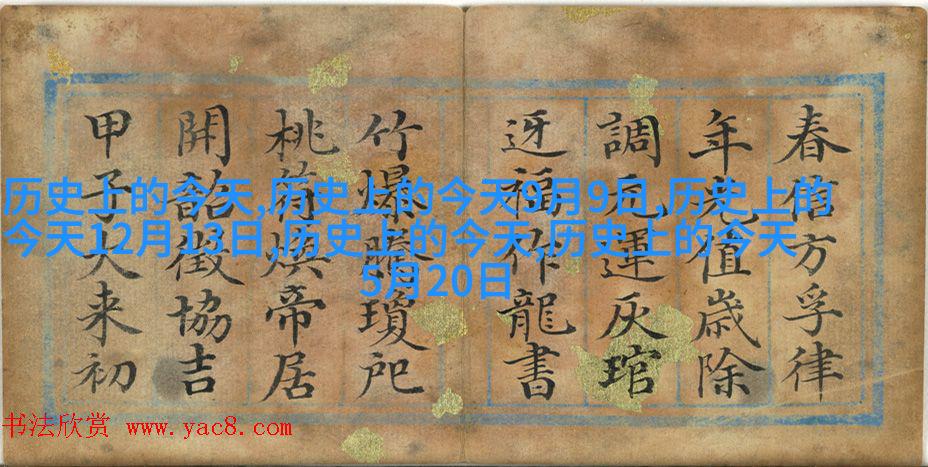 春信方孚律
年光值歲除
調元運灰琯
迓福作龍書
竹爆騰瓊戺
桃符煥帝居
開韶徵協吉
甲子大來初
历史上的今天,历史上的今天9月9日,历史上的
今天12月13日,历史上的今天,历史上的今天
5月20日
书法欣赏 www.yac8.com